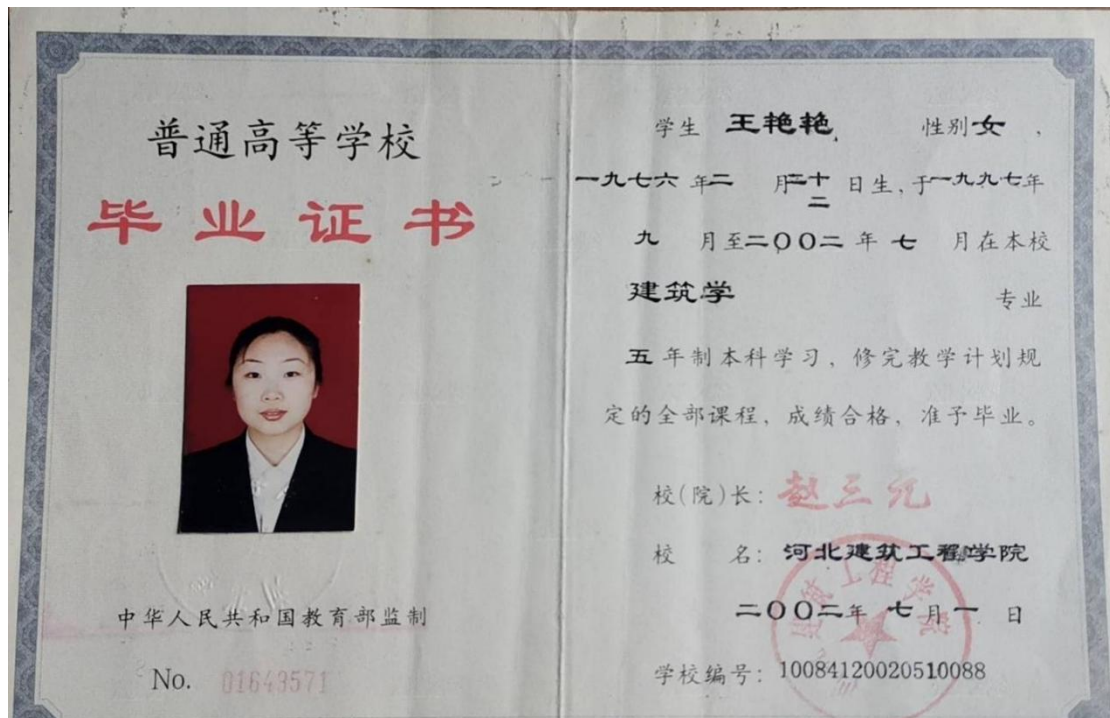 普通高等学校
毕业证书
中华人民共和国教育部监制
No. 01643571
学生 王艳艳 性别女，
一九七六年二月二十二日生，于一九九七年
九月至二〇〇二年七月在本校
建筑学 专业
五年制本科学习，修完教学计划规
定的全部课程，成绩合格，准予毕业。
校(院)长：赵三元
校 名：河北建筑工程学院
二〇〇二年七月一日
学校编号：10084120020510088